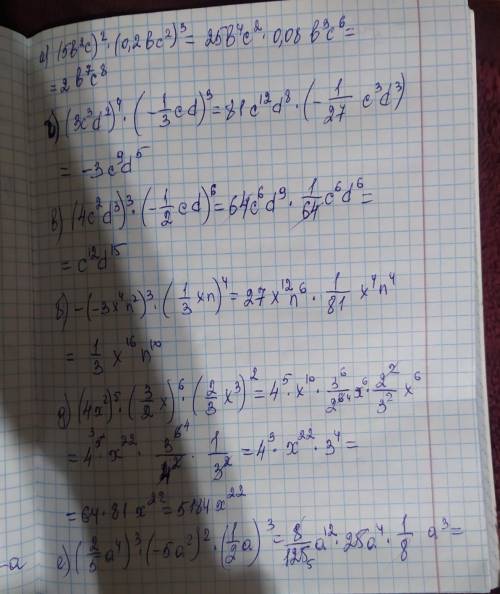 а) (5b²c)² · (0,2bc²)³ = 25b⁴c² · 0,08b³c⁶ =
= 2b⁷c⁸
г) (3c³d²)⁴ · (-1/3 cd)³ = 81c¹²d⁸ · (-1/27 c³d³)
= -3c⁹d⁵
в) (4c²d³)³ · (-1/2 cd)⁶ = 64c⁶d⁹ · 1/64 c⁶d⁶ =
= c¹²d¹⁵
б) -(-3x⁴n²)³ · (1/3 xn)⁴ = 27x¹²n⁶ · 1/81 x⁴n⁴
= 1/3 x¹⁶n¹⁰
д) (4x²)⁵ · (3/2 x)⁶ · (2/3 x³)² = 4⁵ · x¹⁰ · 3⁶/2⁶ x⁶ · 2²/3² x⁶
= 4⁵ · x²² · 3⁶/4² · 1/3² = 4³ · x²² · 3⁴ =
= 64 · 81x²² = 5184x²²
-а е) (2/5 a⁴)³ · (-5a²)² · (1/2 a)³ = 8/125 a¹² · 25a⁴ · 1/8 a³ =